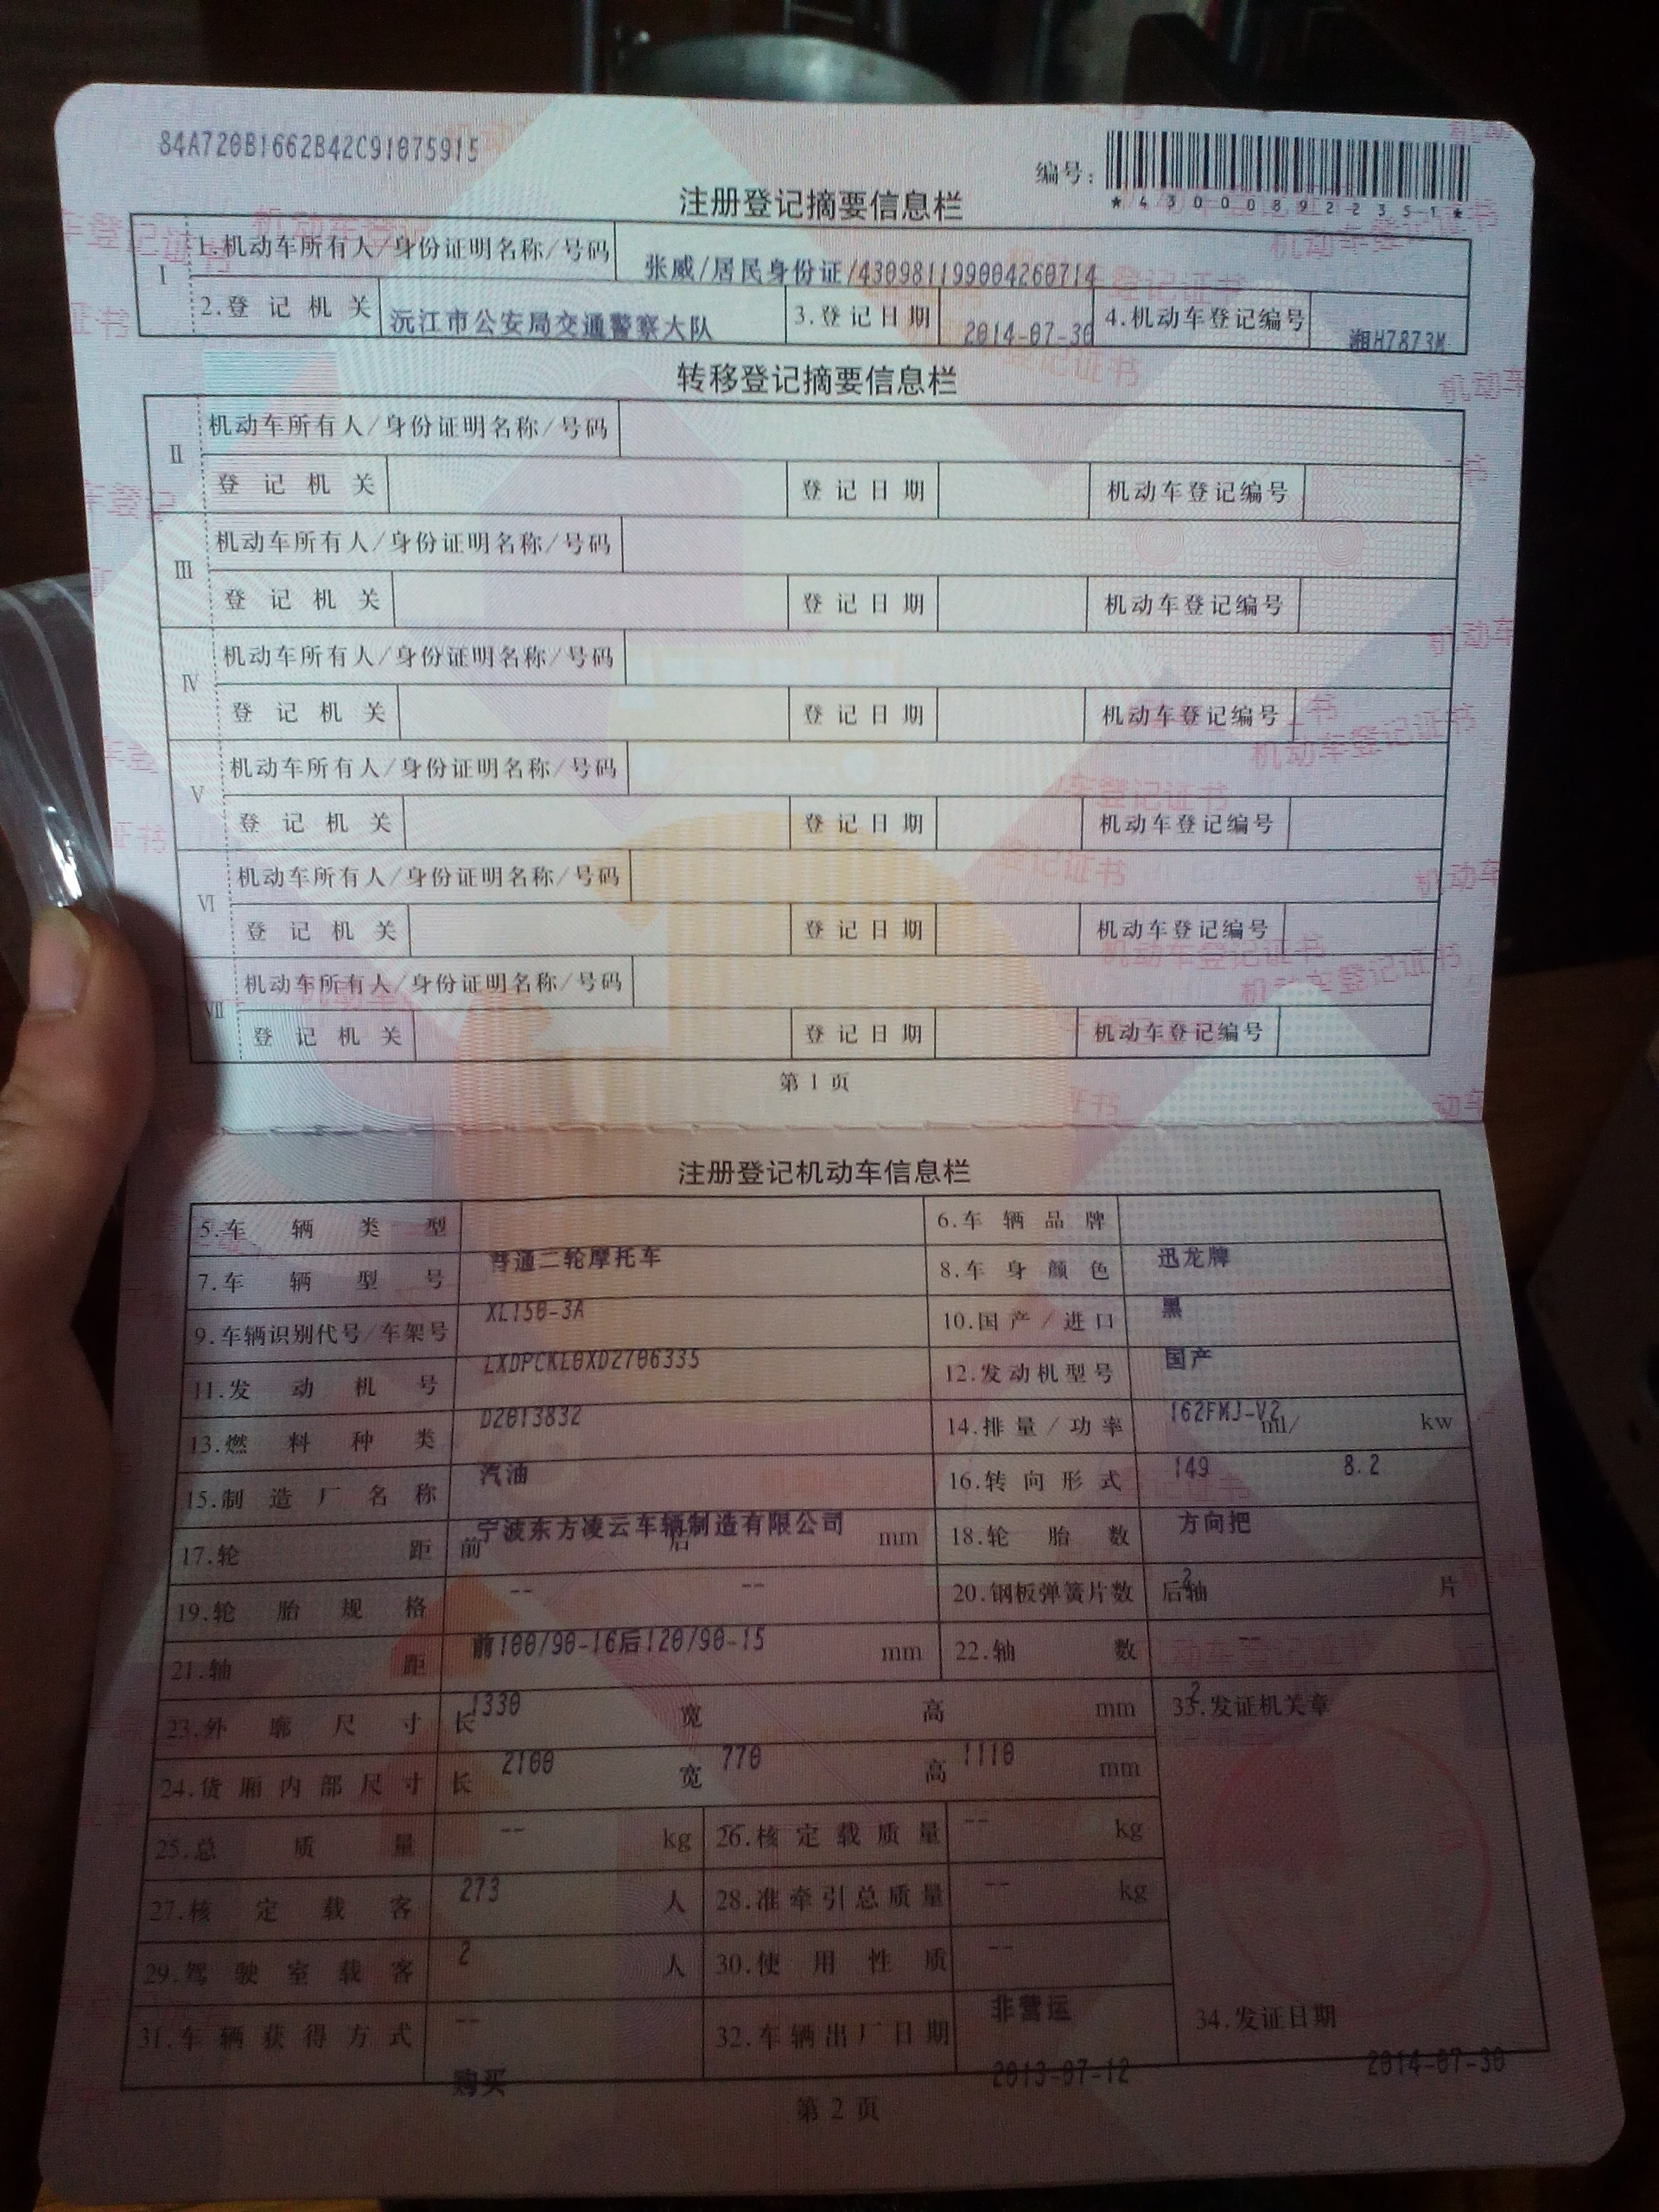 84A720B1662B42C91075915
编号:
*430008922351*
注册登记摘要信息栏
I 1.机动车所有人/身份证明名称/号码 张威/居民身份证/430981199004260714
2.登记机关 沅江市公安局交通警察大队 3.登记日期 2014-07-30 4.机动车登记编号 湘H7873M
转移登记摘要信息栏
II 机动车所有人/身份证明名称/号码
登记机关 登记日期 机动车登记编号
III 机动车所有人/身份证明名称/号码
登记机关 登记日期 机动车登记编号
IV 机动车所有人/身份证明名称/号码
登记机关 登记日期 机动车登记编号
V 机动车所有人/身份证明名称/号码
登记机关 登记日期 机动车登记编号
VI 机动车所有人/身份证明名称/号码
登记机关 登记日期 机动车登记编号
VII 机动车所有人/身份证明名称/号码
登记机关 登记日期 机动车登记编号
第1页
注册登记机动车信息栏
5.车辆类型 普通二轮摩托车 6.车辆品牌 迅龙牌
7.车辆型号 XL150-3A 8.车身颜色 黑
9.车辆识别代号/车架号 LXDPCKL0XD2706335 10.国产/进口 国产
11.发动机号 D2013832 12.发动机型号 162FMJ-V2
13.燃料种类 汽油 14.排量/功率 149 ml/ 8.2 kw
15.制造厂名称 宁波东方凌云车辆制造有限公司 16.转向形式 方向把
17.轮距 前 -- 后 -- mm 18.轮胎数 2
19.轮胎规格 前100/90-16后120/90-15 20.钢板弹簧片数 后轴 -- 片
21.轴距 1330 mm 22.轴数 2
23.外廓尺寸 长 2100 宽 770 高 1110 mm 33.发证机关章
24.货厢内部尺寸 长 -- 宽 -- 高 -- mm
25.总质量 273 kg 26.核定载质量 -- kg
27.核定载客 2 人 28.准牵引总质量 -- kg
29.驾驶室载客 -- 人 30.使用性质 非营运
31.车辆获得方式 购买 32.车辆出厂日期 2013-07-12 34.发证日期 2014-07-30
第2页